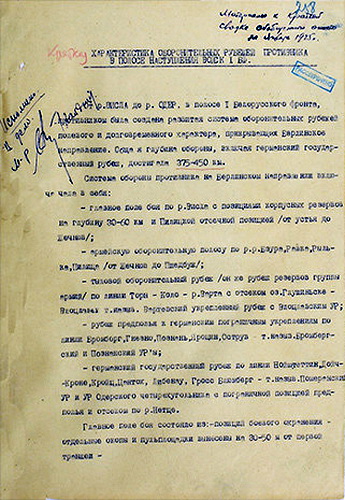 253
Материалы к краткой
сводке обобщенного опыта
за январь 1945г.
Кратко
РАССЕКРЕЧЕНО
ХАРАКТЕРИСТИКА ОБОРОНИТЕЛЬНЫХ РУБЕЖЕЙ ПРОТИВНИКА
В ПОЛОСЕ НАСТУПЛЕНИЯ ВОЙСК I БФ.
ВИСЛА до р. ОДЕР, в полосе I Белорусского фронта,
противником была создана развитая система оборонительных рубежей
полевого и долговременного характера, прикрывающая Берлинское
направление. Общая глубина обороны, включая германский государст-
венный рубеж, достигала 375-450 км.
Система обороны противника на Берлинском направлении вклю-
чала в себя:
- главное поле боя по р.Висла с позициями корпусных резервов
на глубину 30-60 км и Пилицкой отсечной позицией /от устья до
/;
- армейскую оборонительную полосу по р.р.Бзура,Равка,Рыль-
ка,Пилица /от до /;
- тыловой оборонительный рубеж /он же рубеж резервов группы
армий/ по линии Торн - Коло - р.Варта с отсеком оз.
- т.назыв. Вартовский укрепленный рубеж с УР;
- рубеж предполья к германским пограничным укреплениям по
линии Бромберг,Гнезно,Познань, - т.назыв.Бромберг-
ский и Познанский УР'ы;
- германский государственный рубеж по линии Нойштеттин,Дойч-
Кроне,Кройц, - т.назыв.Померанский
УР и УР Одерского четырехугольника с пограничной позицией пред-
полья и отсеком по р.Нетце.
Главное поле боя состояло из:-позиций боевого охранения -
отдельные окопы и пульплощадки вынесены на 30-50 м от первой
траншеи -